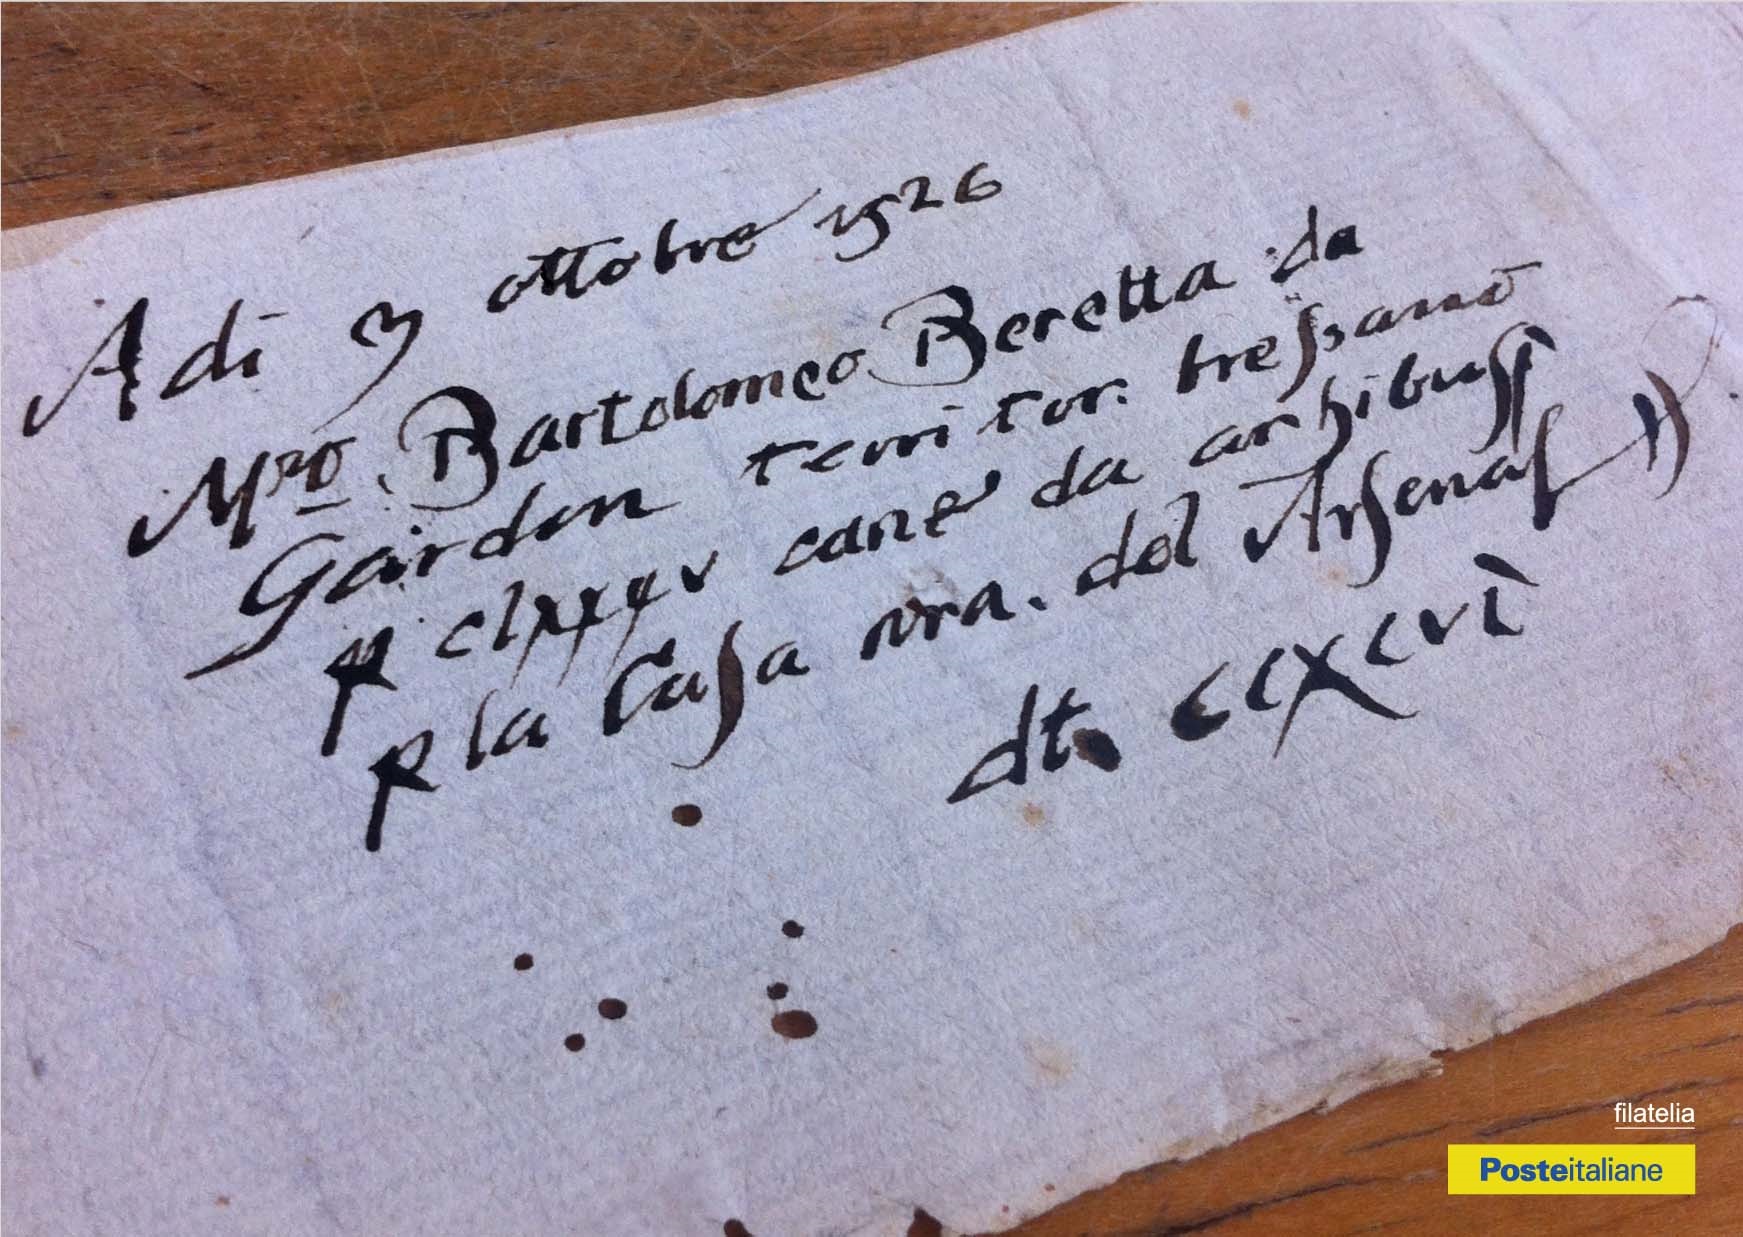 Adi 3 ottobre 1526
Mro. Bartolomeo Beretta da
Gardon territor. bressano
p clxxxv cane da archibusi
p la Casa nra. del Arsenal
dt. cclxxxxvi
filatelia
Posteitaliane